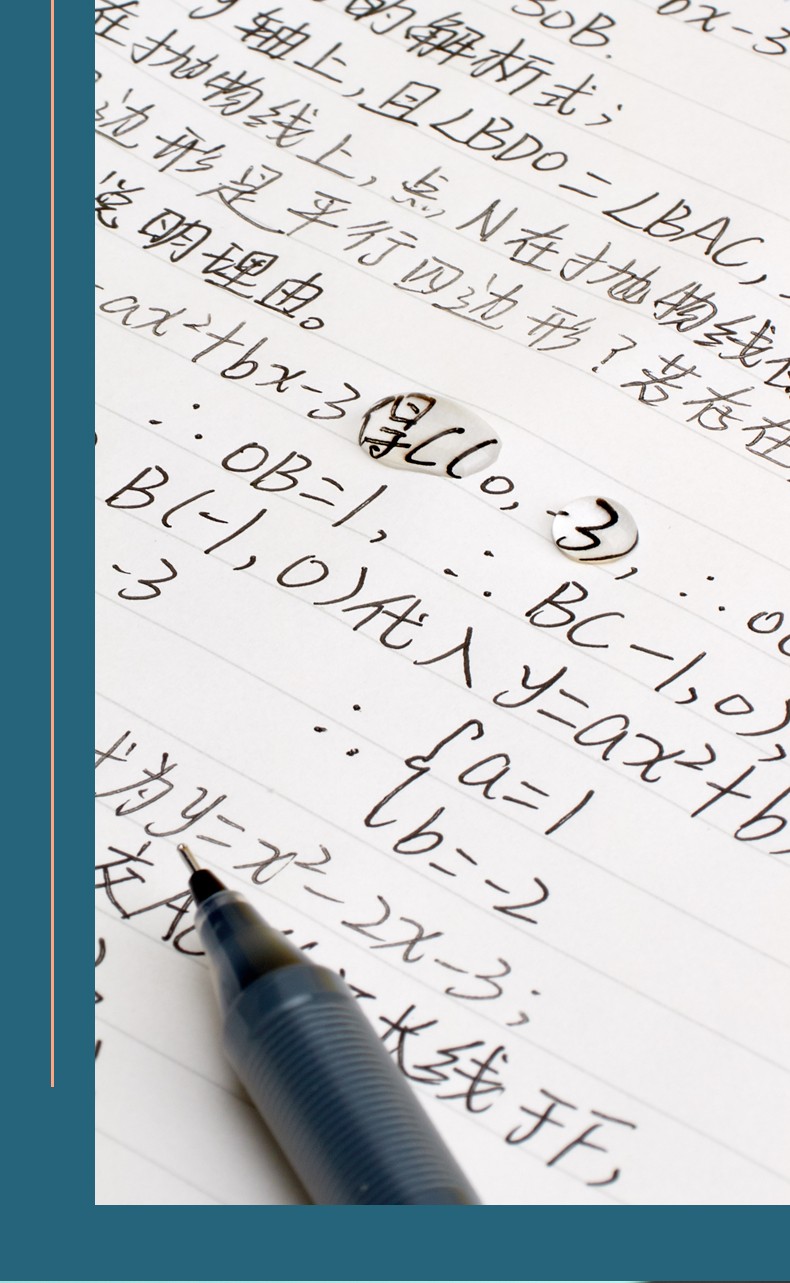 3OB. bx-3
轴上的解析式;
在抛物线上,且∠BDO=∠BAC,
边形是平行四边形?若存在
点N在抛物线
说明理由。
=ax²+bx-3得C(0,-3),∴
∴OB=1,∴BC-1,0),
B(-1,0)代入y=ax²+b
-3
∴{a=1
b=-2
式为y=x²-2x-3;
交AC
长线于F,